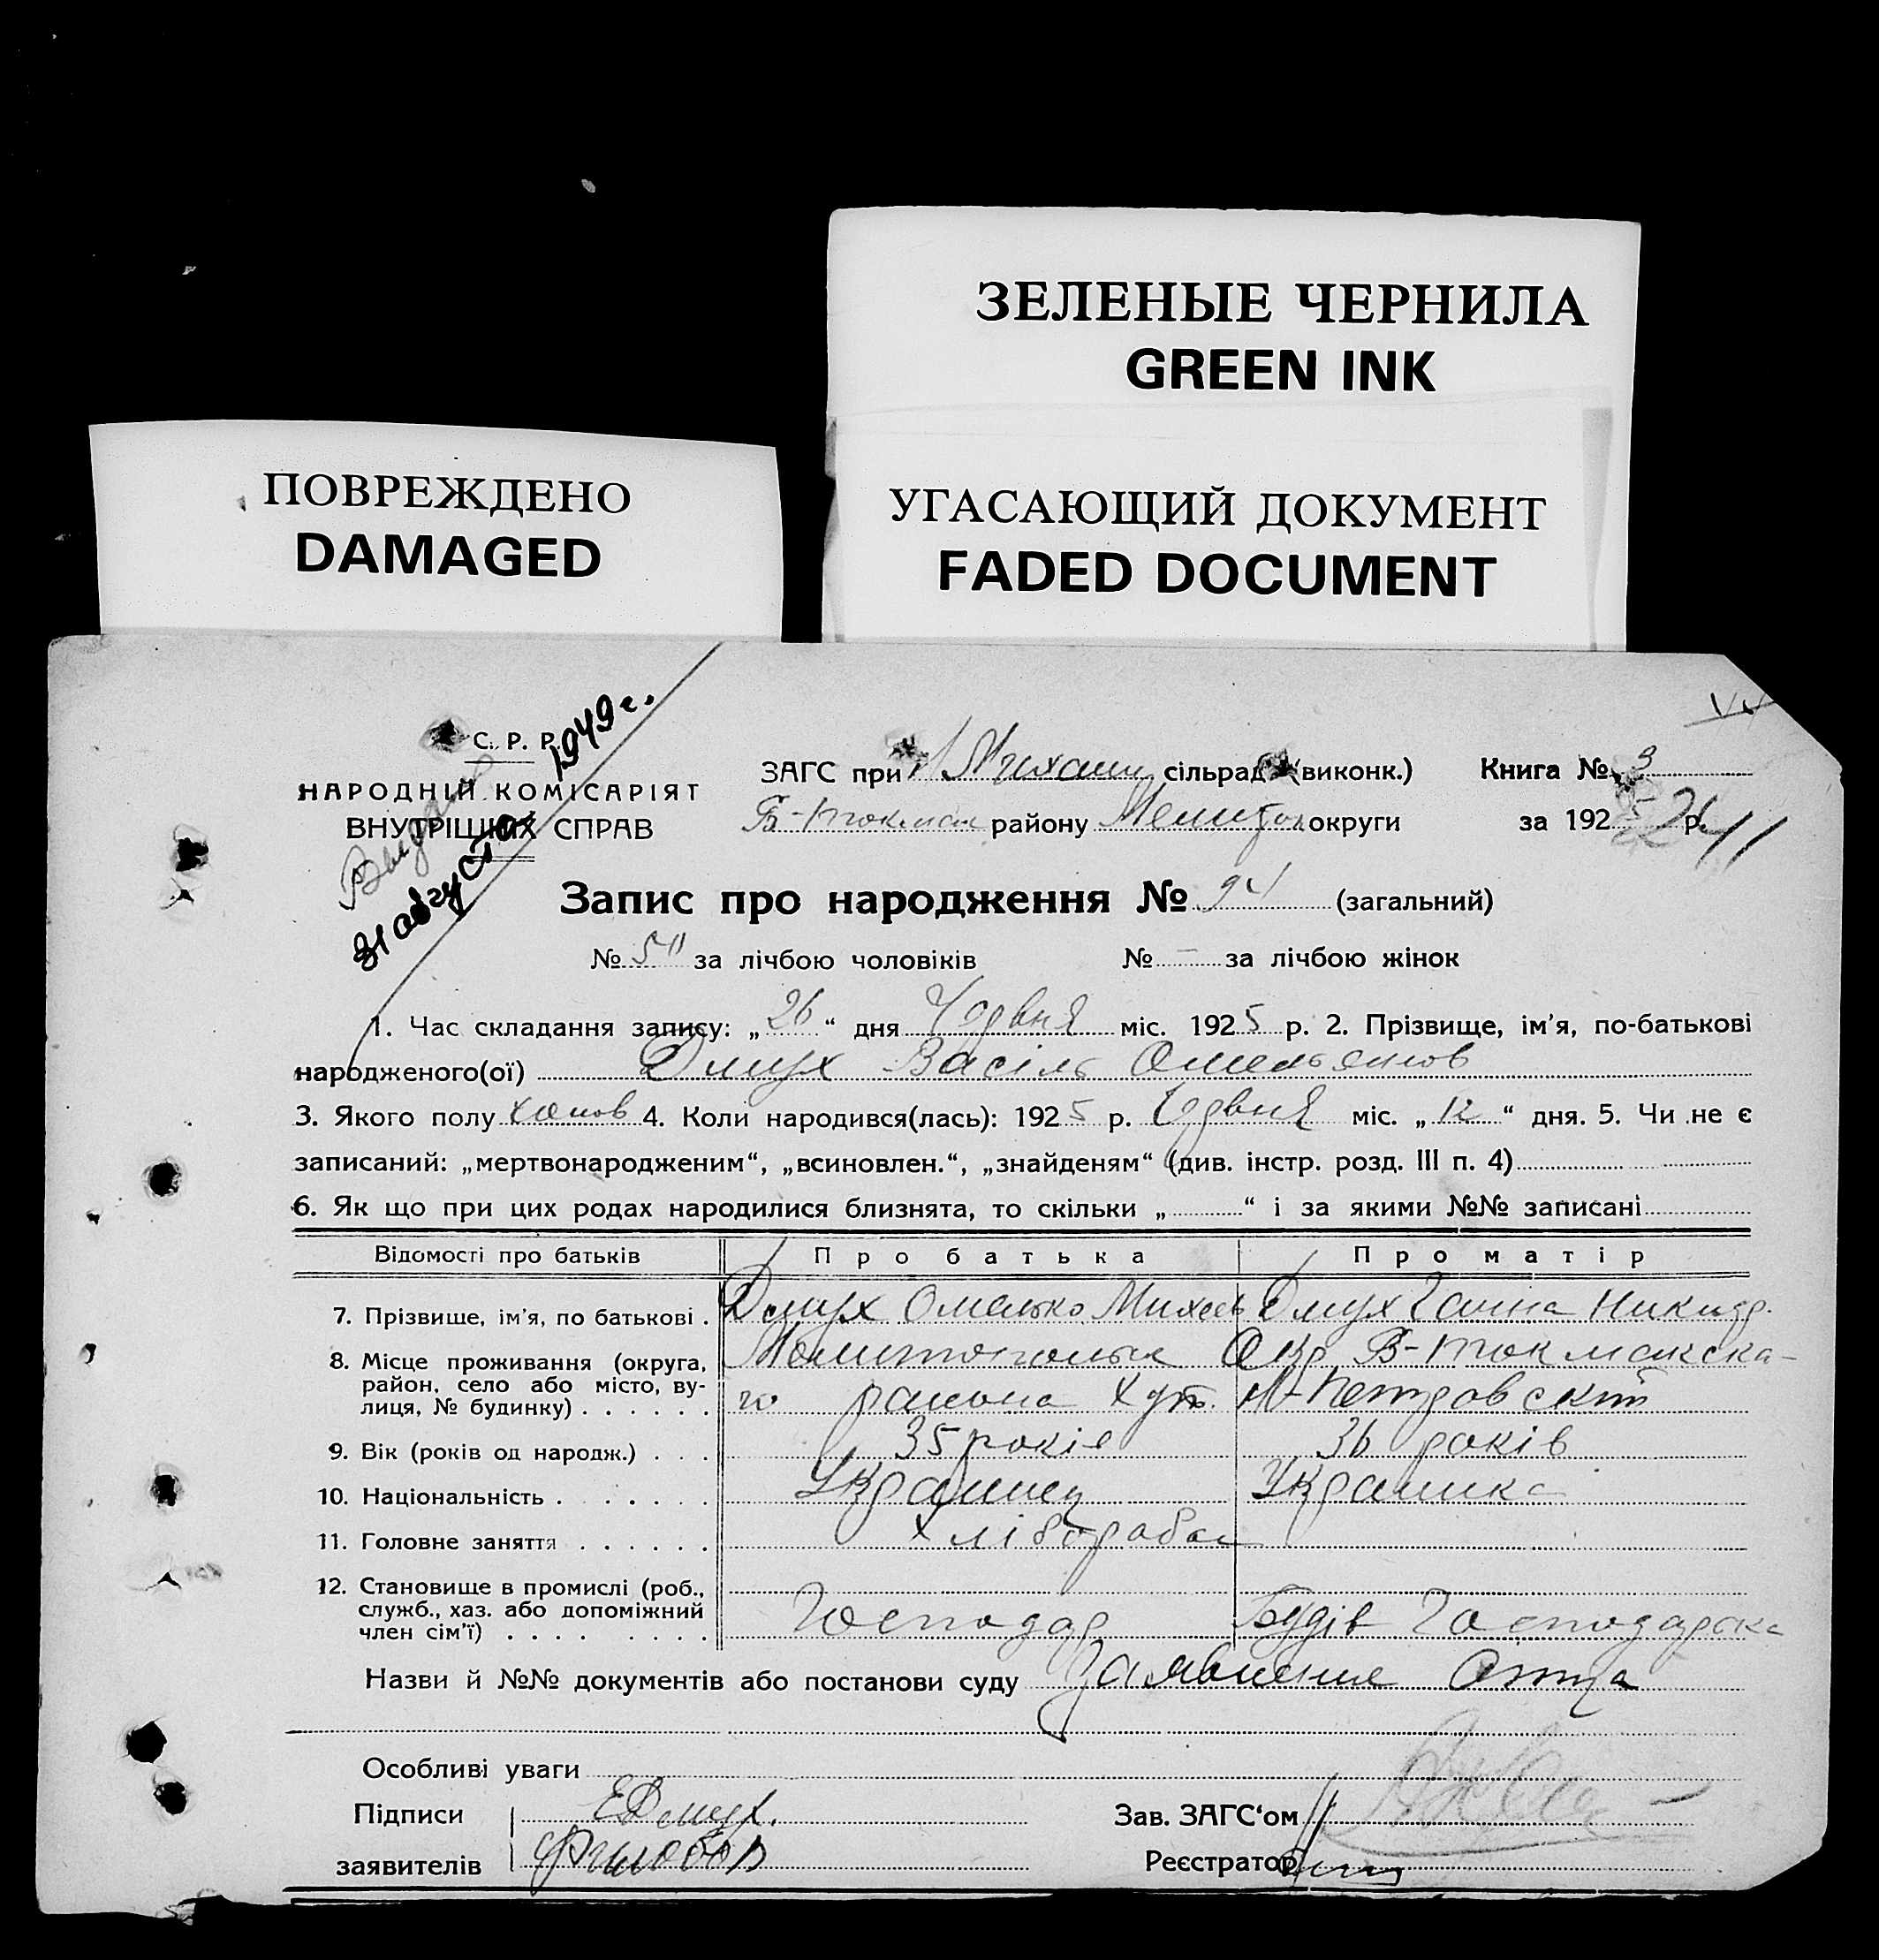 ЗЕЛЕНЫЕ ЧЕРНИЛА
GREEN INK
ПОВРЕЖДЕНО
DAMAGED
УГАСАЮЩИЙ ДОКУМЕНТ
FADED DOCUMENT
С. Р. Р.
НАРОДНІЙ КОМІСАРІЯТ
ВНУТРІШНІХ СПРАВ
Выдано
31 августа 1949 г.
ЗАГС при сільрад (виконк.) Книга № 3
Б-Токмак району Мелитоп округи за 1925 р.
Запис про народження № 94 (загальний)
№ 50 за лічбою чоловіків № – за лічбою жінок
1. Час складання запису: „26“ дня Червня міс. 1925 р. 2. Прізвище, ім'я, по-батькові
народженого(ої) Дмух Васіль Омельянов
3. Якого полу 4. Коли народився(лась): 1925 р. Червня міс. „12“ дня. 5. Чи не є
записаний: „мертвонародженим“, „всиновлен.“, „знайденям“ (див. інстр. розд. III п. 4)
6. Як що при цих родах народилися близнята, то скільки „ “ і за якими №№ записані
Відомості про батьків Про батька Про матір
7. Прізвише, ім'я, по батькові . Дмух Омелько Михеев Дмух Ганна Никидр.
8. Місце проживання (округа, район, село або місто, вулиця, № будинку) . . . . . . Мелитопольск Окр. В-Токмакска-
го района Хут. М-Петровский
9. Вік (років од народж.) . . . 35 років 36 років
10. Національність . . . . . . . Украинец Украинка
11. Головне заняття . . . . . . хлібороба
12. Становище в промислі (роб., служб., хаз. або допоміжний член сім'ї) . . . . . . . . . Господар Господарска
Назви й №№ документів або постанови суду Заявление Отца
Особливі уваги
Підписи ЕДмух. Зав. ЗАГС'ом
заявителів Реєстратор